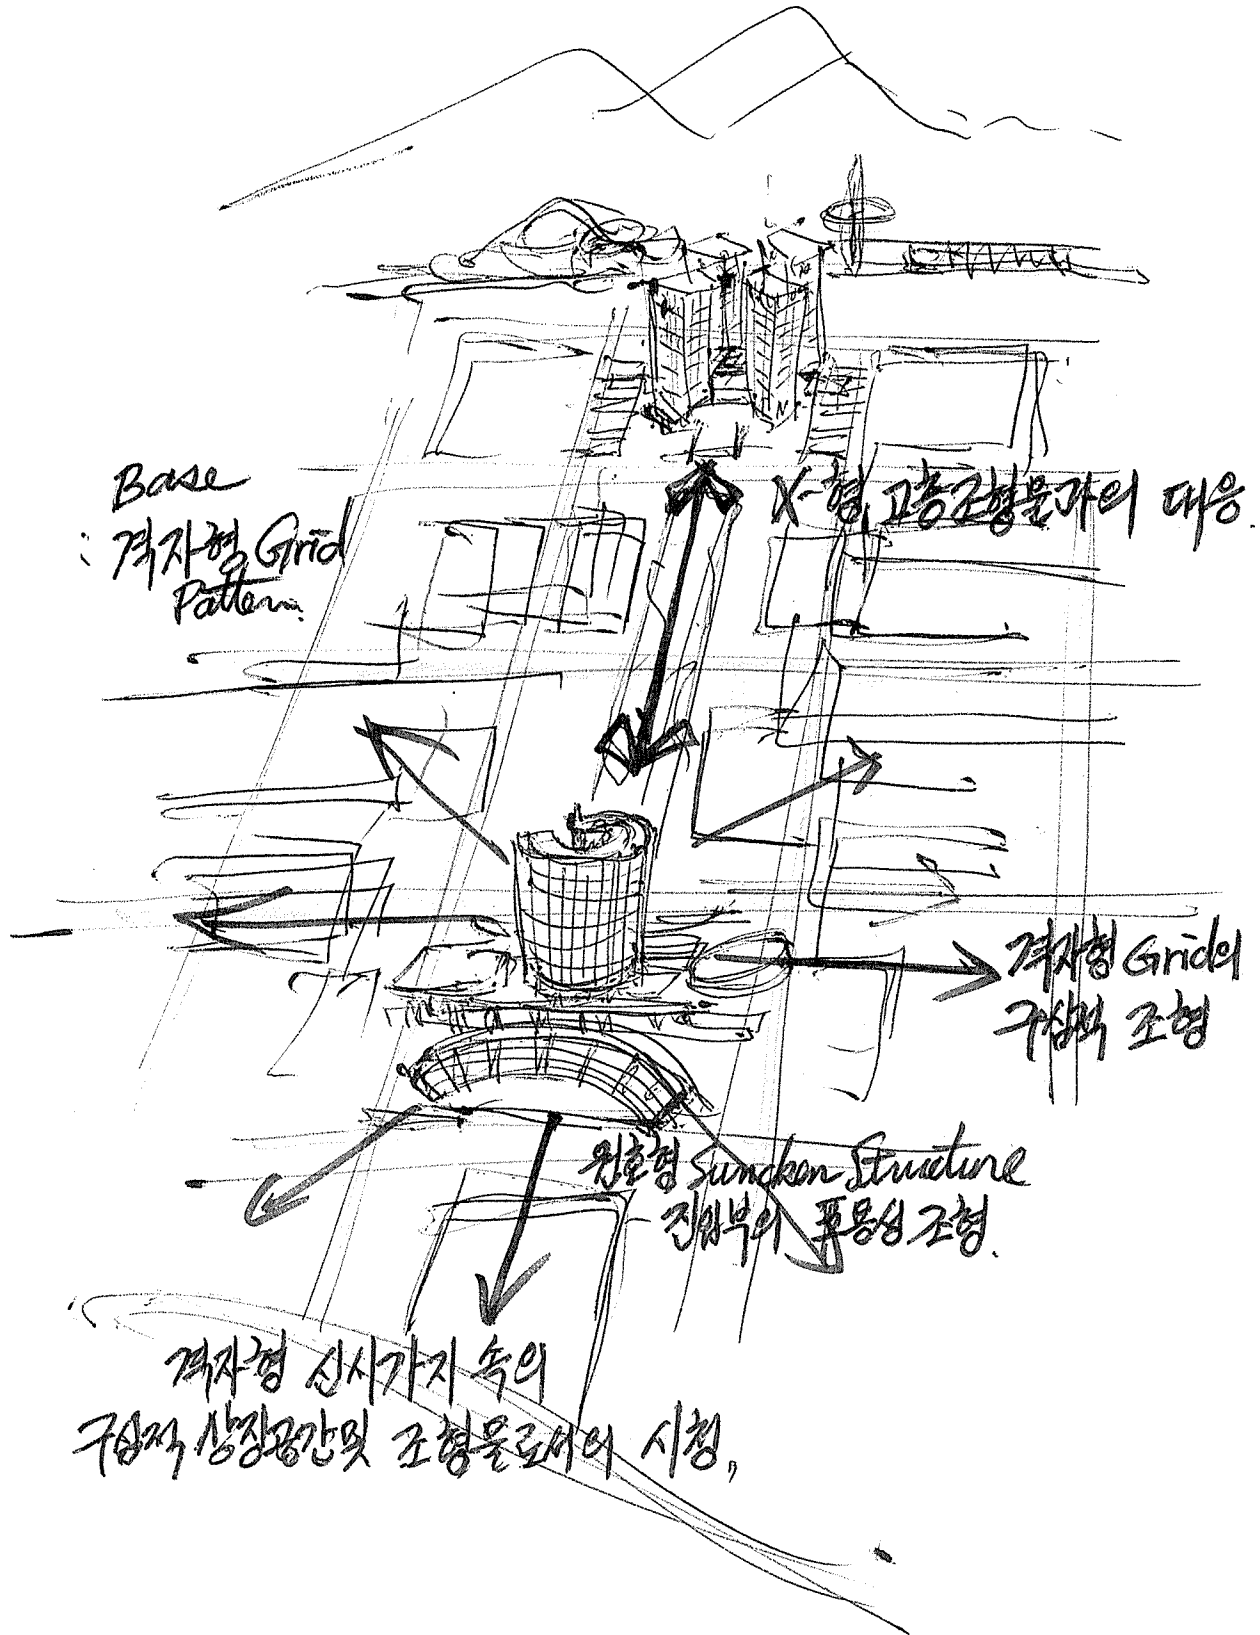 Base
: 격자형 Grid
Pattern.
X-형 고층조형물과의 대응.
격자형 Grid의
구심적 조형
원호형 Suncken Structure
진입부의 포용성 조형.
격자형 신시가지 속의
구심적 상징공간및 조형물로서의 시청,